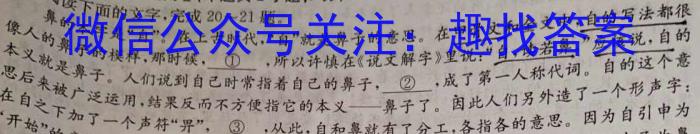 阅读下面的文字,完成20~21题。
微信公众号关注:趣找答案
鼻的 时代,"自"就 鼻子的意思。在甲 自的写法都很
像人的鼻子的模样,那时候, ① ,所以许慎在《说文解字》里说: 自的
本义就是鼻子。人们说到自己时常指着自己的鼻子, ② ,成了第一人称代词。自的这个意
思后来被广泛运用,结果反而不方便指它的本义——鼻子了。因此人们另外造了一个形声字:
在自之下加了一个声符"畀", ③ ,从此,自和鼻就有了分工,各指各的意思。因为自引申为
"开始"的